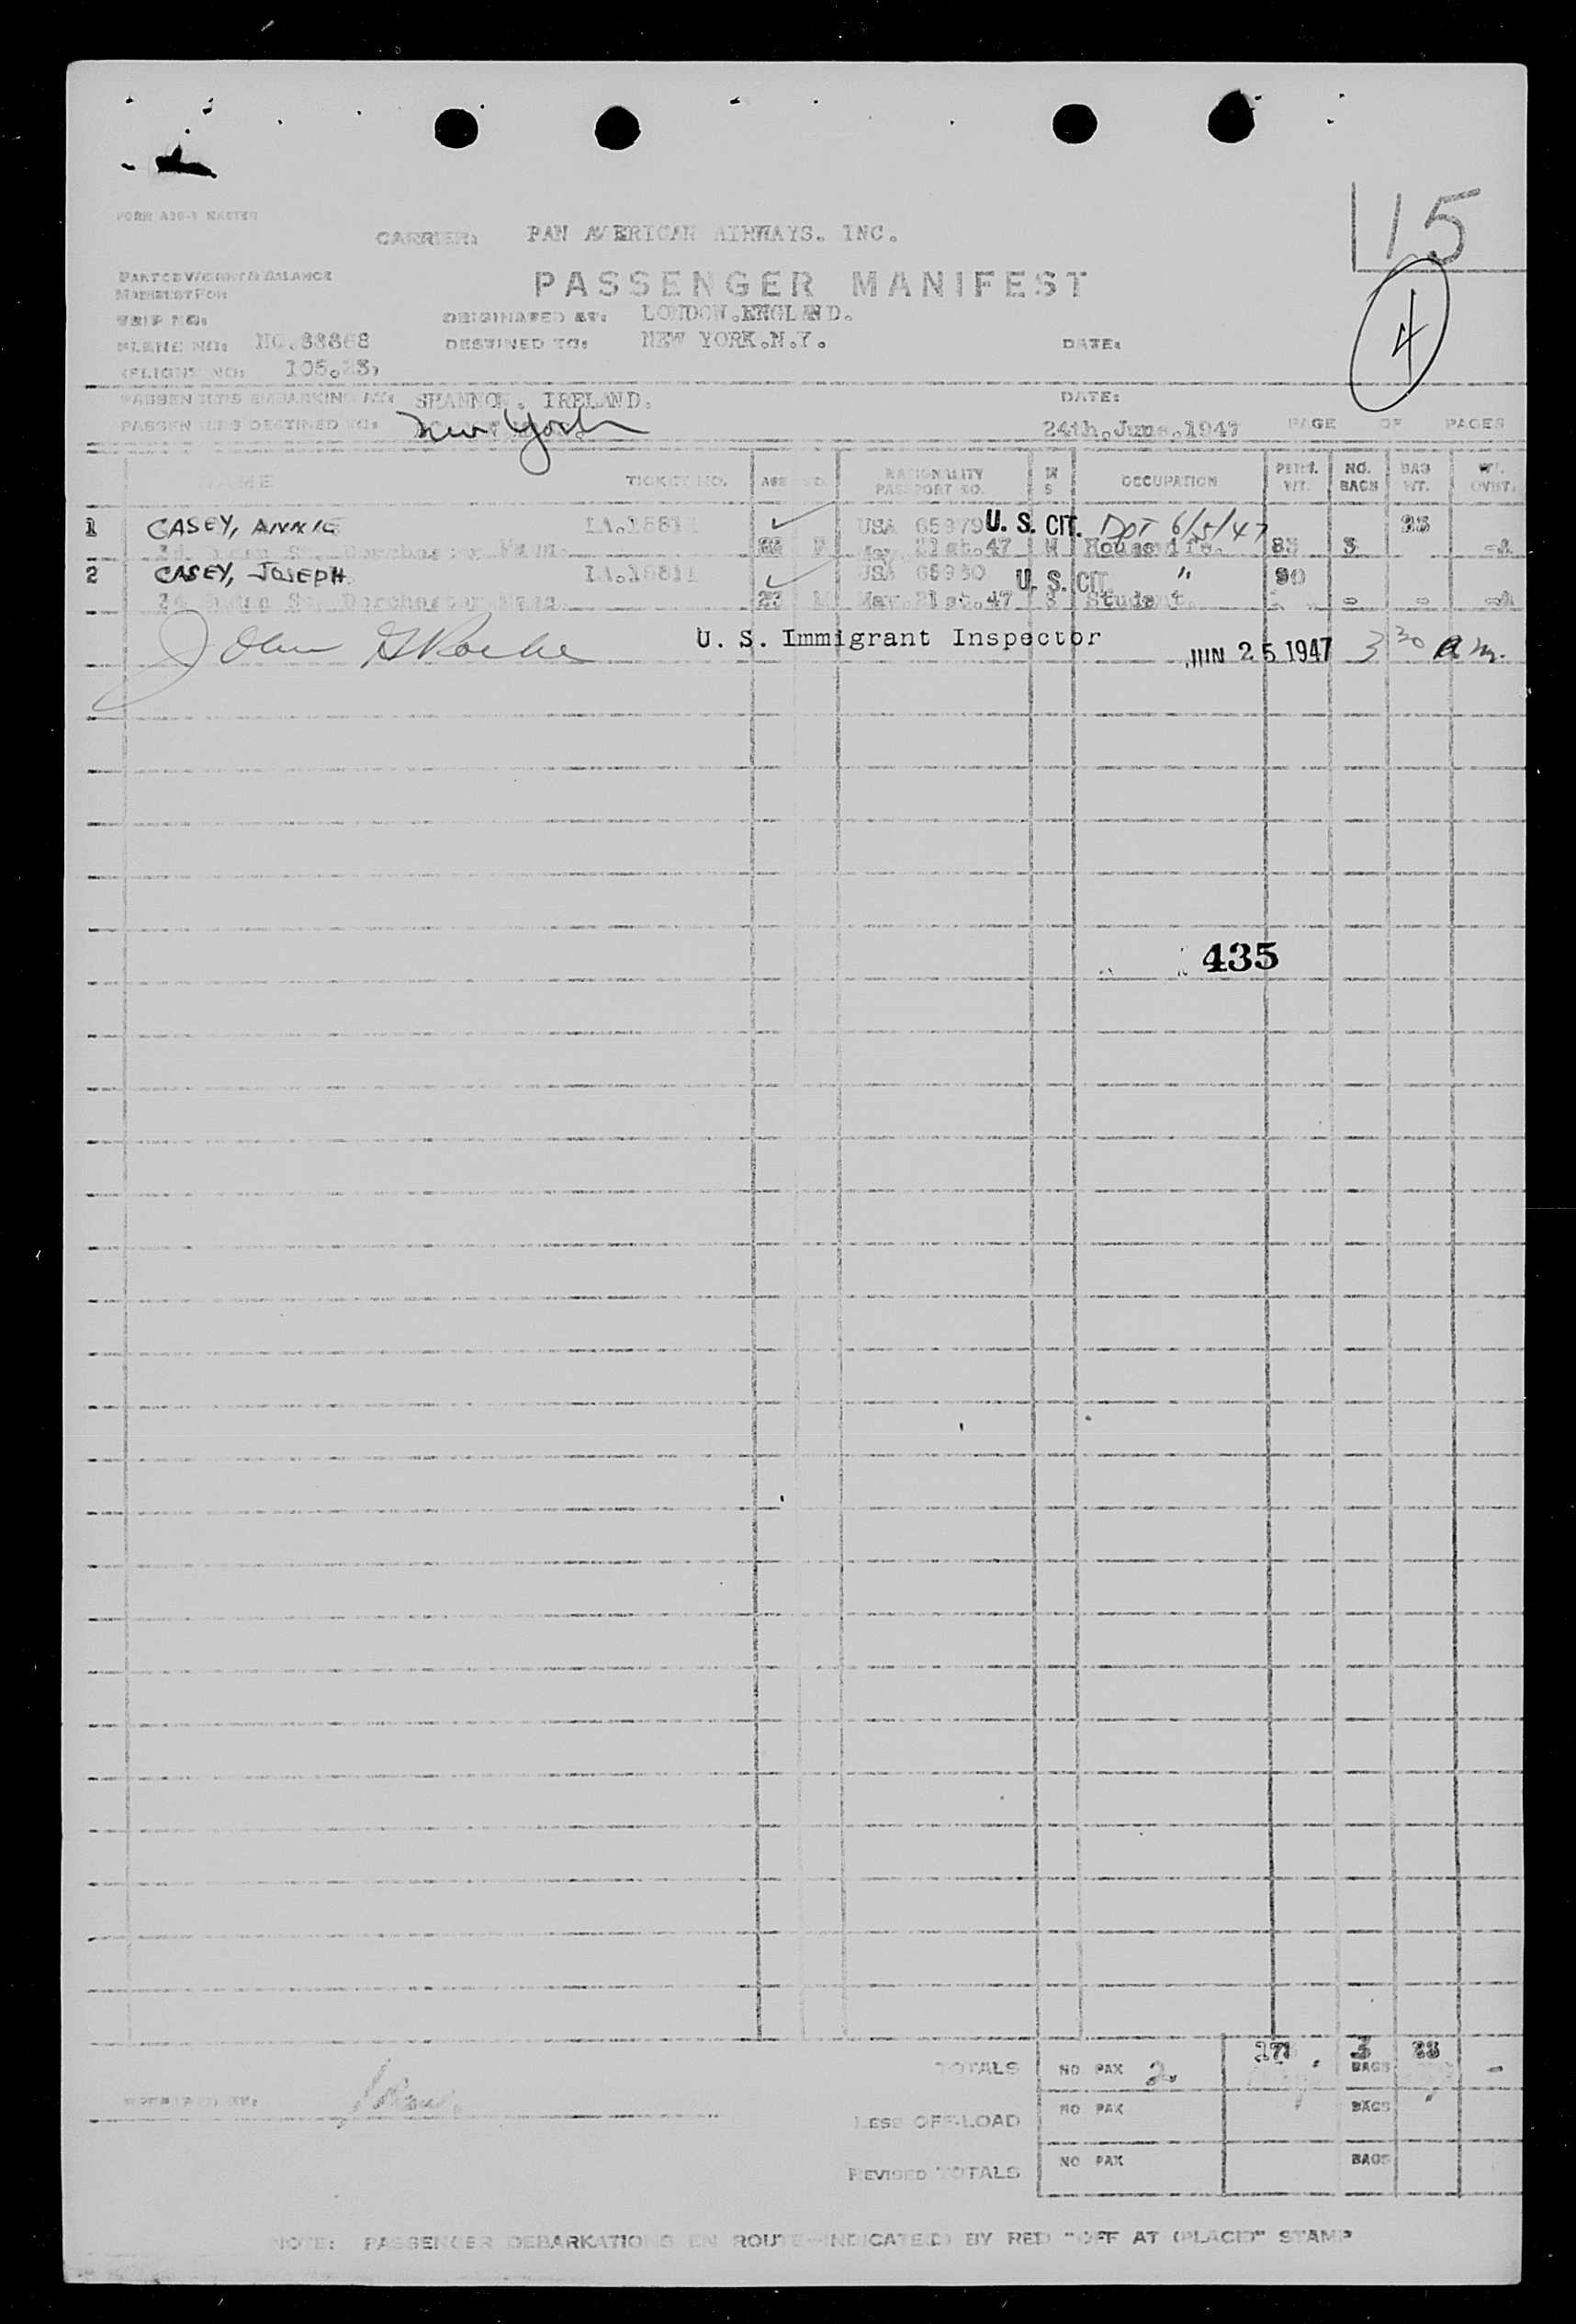 15
FORM A20-1 MASTER
CARRIER: PAN AMERICAN AIRWAYS. INC.
PART OF WEIGHT & BALANCE
MANIFEST FOR
PASSENGER MANIFEST
4
TRIP NO: ORIGINATED AT: LONDON.ENGLAND.
PLANE NO: NC.88868 DESTINED TO: NEW YORK.N.Y. DATE:
FLIGHT NO: 105.23,
PASSENGERS EMBARKING AT: SHANNON. IRELAND. DATE:
PASSENGERS DESTINED TO: New York 24th.June.1947 PAGE OF PAGES
NAME TICKET NO. AGE NATIONALITY PASSPORT NO. M S OCCUPATION PETN. WT. NO. BAGS BAG WT. WT. OVWT.
1 CASEY, ANNIE USA 65979 U. S. CIT. DPT 6/5/47
St. Dorchester Mass. F 21st.47 M Housewife. 3
2 CASEY, JOSEPH USA U. S. CIT. " 90
St. Dorchester Mass. 21st.47 S Student. -
U. S. Immigrant Inspector JUN 25 1947 3 30 a m.
435
TOTALS NO PAX 2. 171 3 BAGS -
LESS OFF-LOAD NO PAX BAGS
REVISED TOTALS NO PAX BAGS
NOTE: PASSENGER DEBARKATIONS EN ROUTE—INDICATE(D) BY RED "OFF AT (PLACE)" STAMP